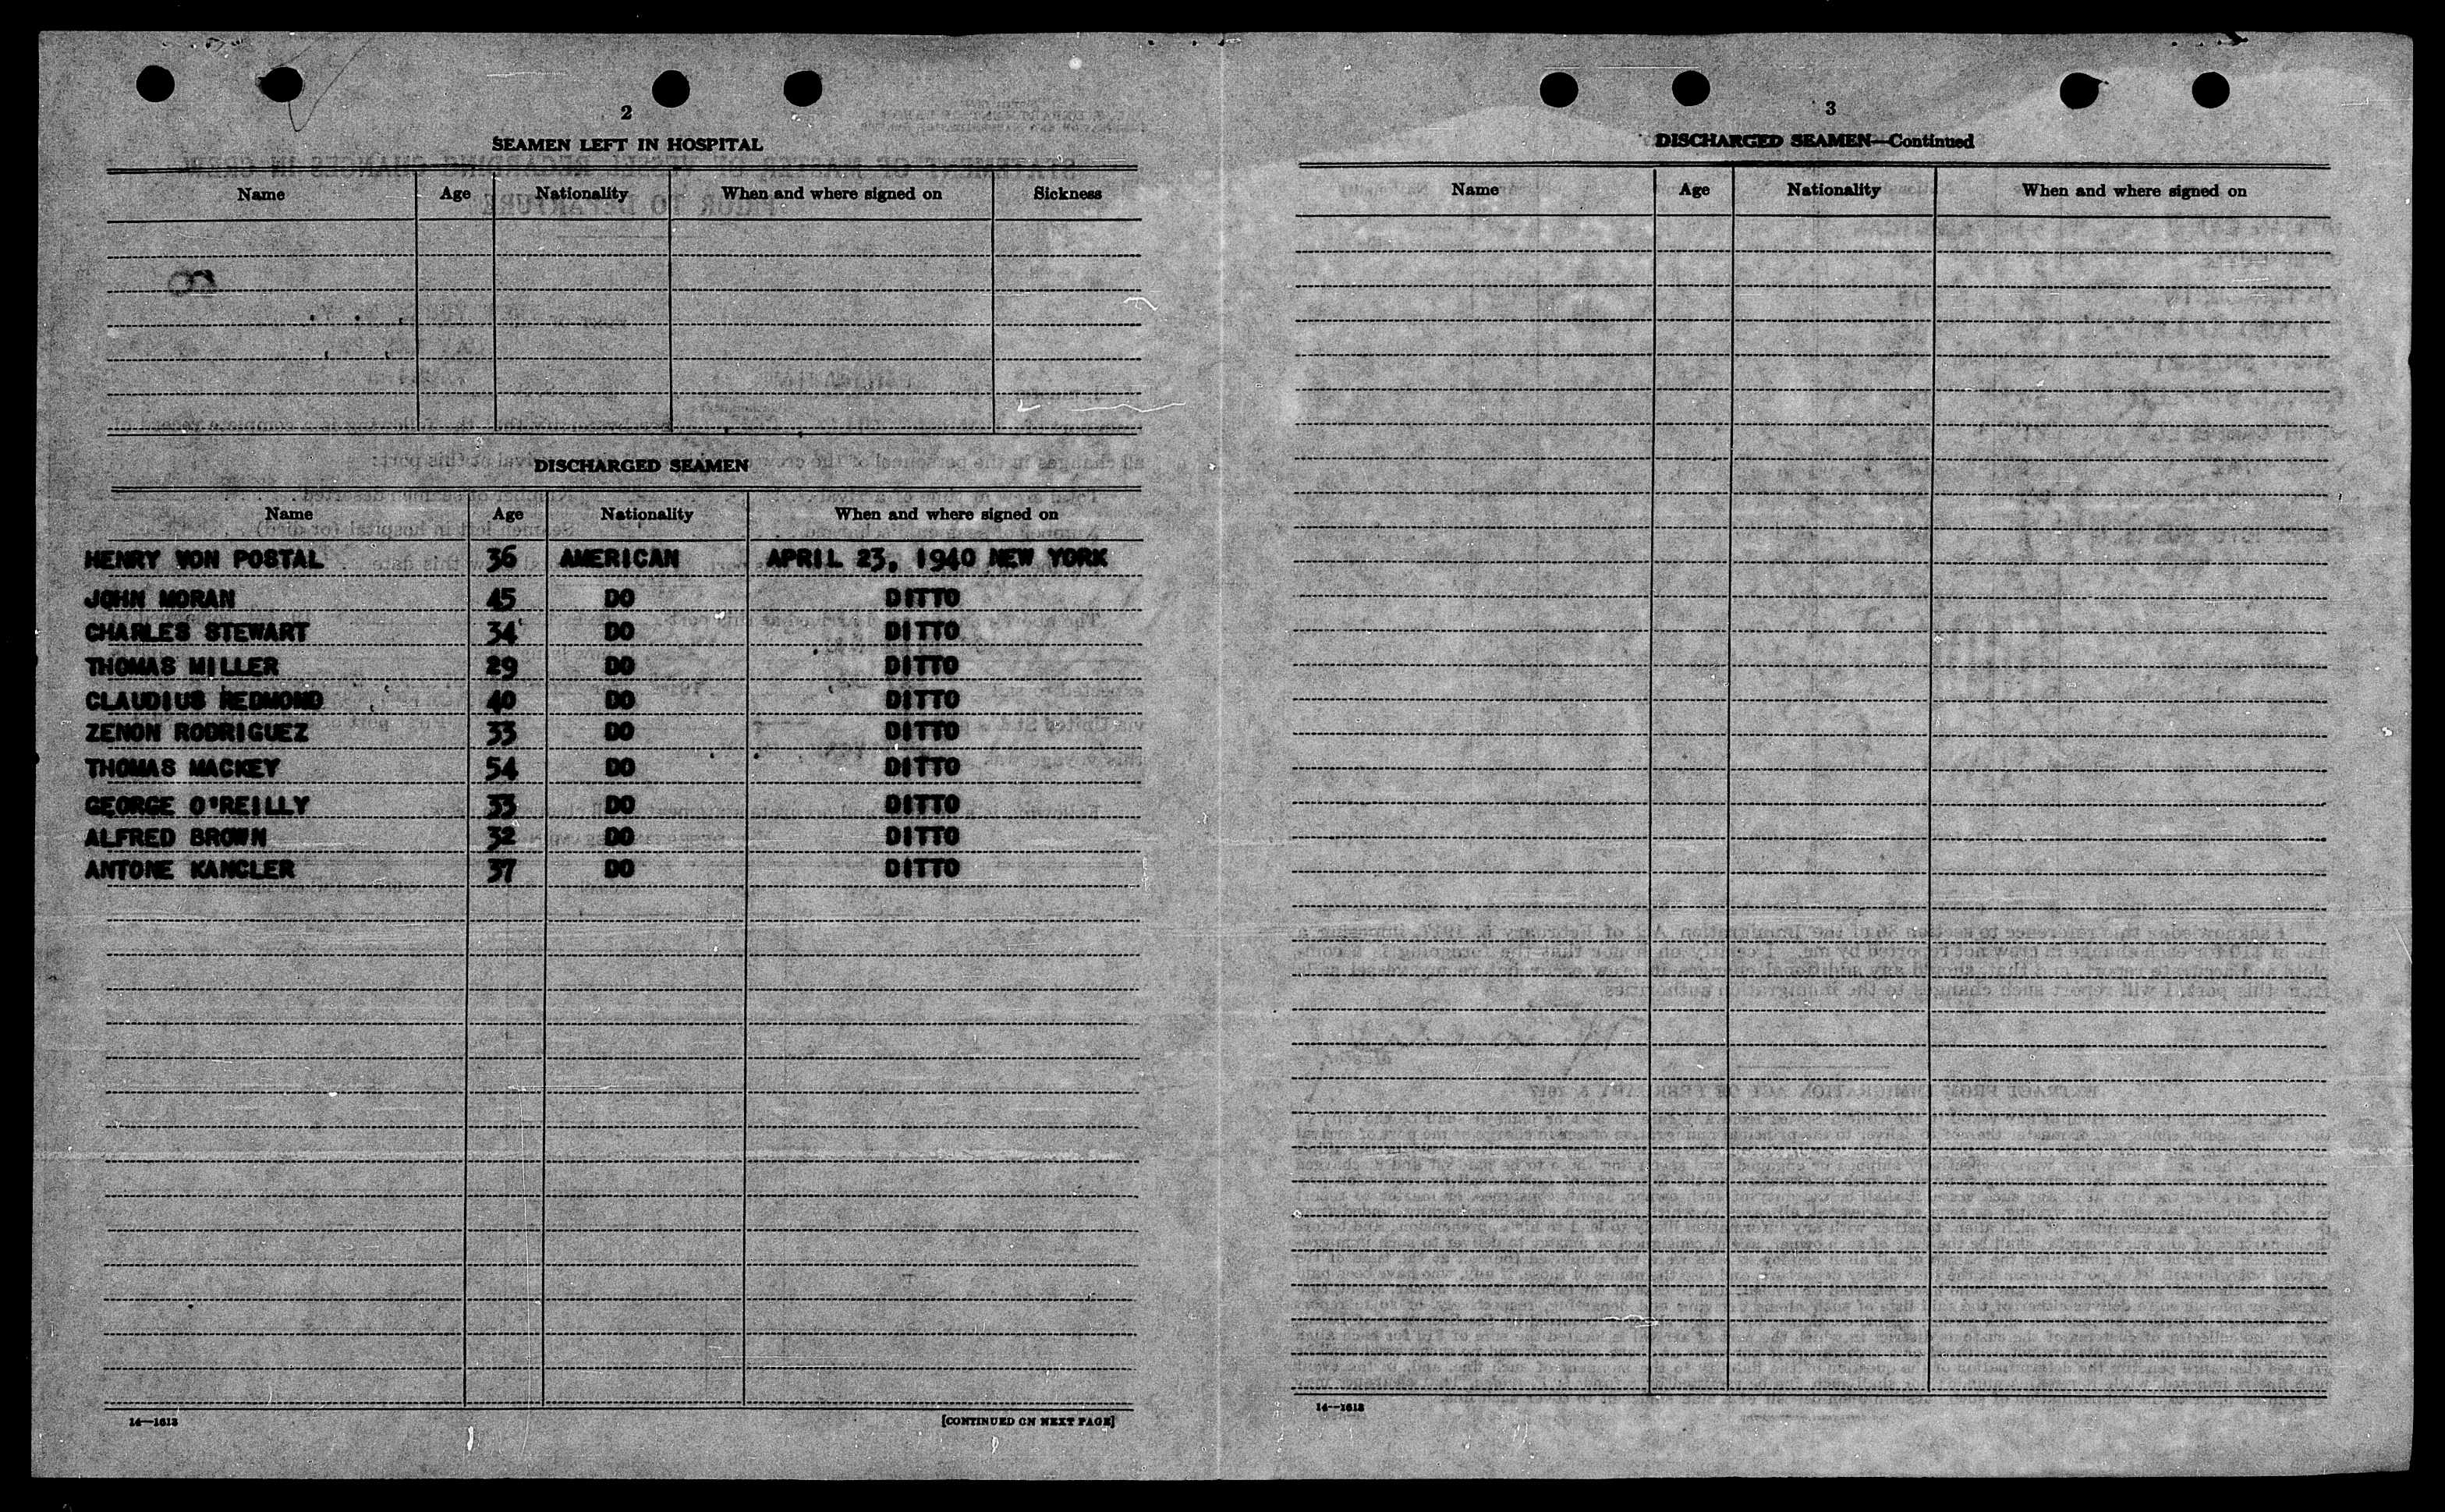 2
SEAMEN LEFT IN HOSPITAL
Name Age Nationality When and where signed on Sickness
DISCHARGED SEAMEN
Name Age Nationality When and where signed on
HENRY VON POSTAL 36 AMERICAN APRIL 23, 1940 NEW YORK
JOHN MORAN 45 DO DITTO
CHARLES STEWART 34 DO DITTO
THOMAS MILLER 29 DO DITTO
CLAUDIUS REDMOND 40 DO DITTO
ZENON RODRIGUEZ 33 DO DITTO
THOMAS MACKEY 54 DO DITTO
GEORGE O'REILLY 33 DO DITTO
ALFRED BROWN 32 DO DITTO
ANTONE KANCLER 37 DO DITTO
14—1613
[CONTINUED ON NEXT PAGE]
3
DISCHARGED SEAMEN—Continued
Name Age Nationality When and where signed on
14—1613